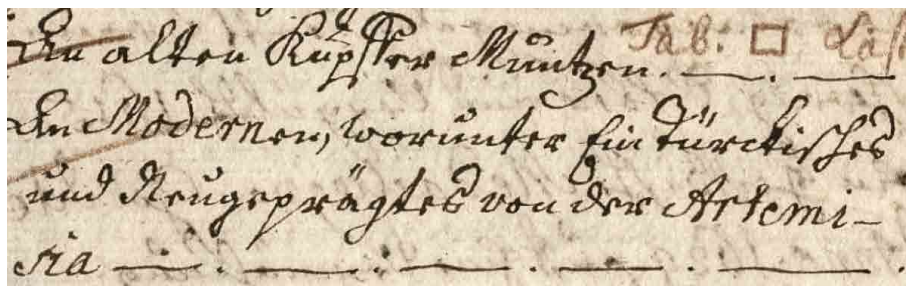 An alten Kupffer Müntzen. — . —
Tab: □
An Modernen, worunter Ein türckisches
und Neugeprägtes von der Artemi-
sia — . — . — . — . — .